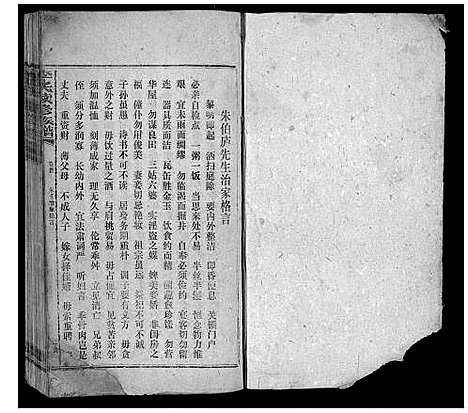 朱伯庐先生治家格言
黎明即起 洒扫庭除 要内外整洁 即昏便息 关锁门户
必亲自检点 一粥一饭 当思来处不易 半丝半缕 恒念物力维
艰 宜未雨而绸缪 毋临渴而掘井 自奉必须俭约 宴客切勿留
连 器具质而洁 瓦缶胜金玉 饮食约而精 园蔬愈珍馐 勿营
华屋 勿谋良田 三姑六婆 实淫盗之媒 婢美妾娇 非闺房之
福 僮仆勿用俊美 妻妾切忌艳妆 祖宗虽远 祭祀不可不诚
子孙虽愚 诗书不可不读 居身务期质朴 训子要有义方 毋贪
意外之财 毋饮过量之酒 与肩挑贸易 毋占便宜 见贫苦亲邻
须加温恤 刻薄成家 理无久享 伦常乖舛 立见消亡 兄弟叔
侄 须分多润寡 长幼内外 宜法肃词严 听妇言 乖骨肉岂是
丈夫 重资财 薄父母 不成人子 嫁女择佳婿 毋索重聘